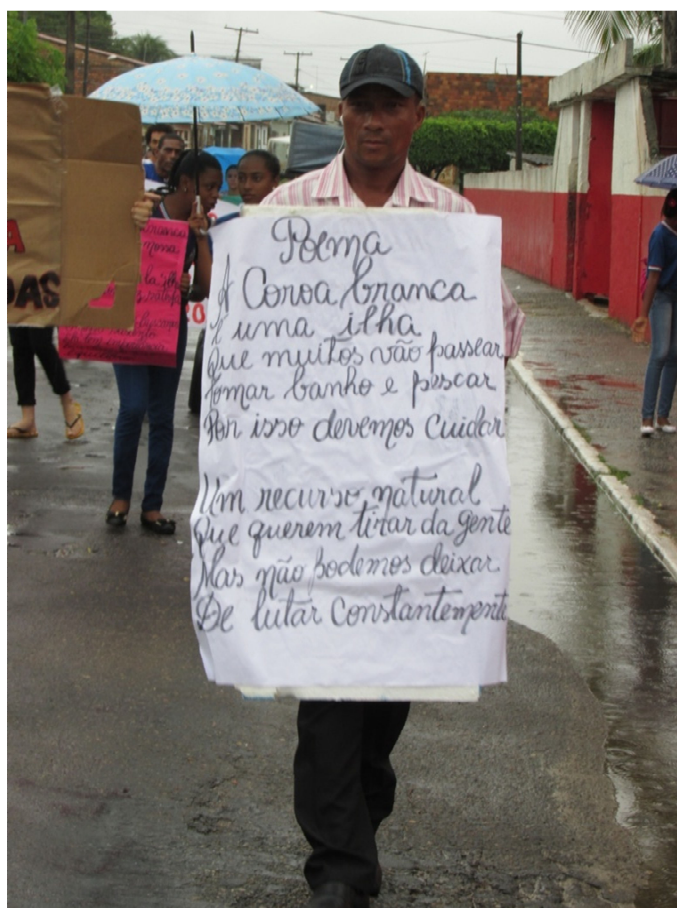 Poema
A Coroa branca
É uma ilha
Que muitos vão passear
Tomar banho e pescar
Por isso devemos cuidar
Um recurso natural
Que querem tirar da gente
Mas não podemos deixar
De lutar constantemente
A
DAS